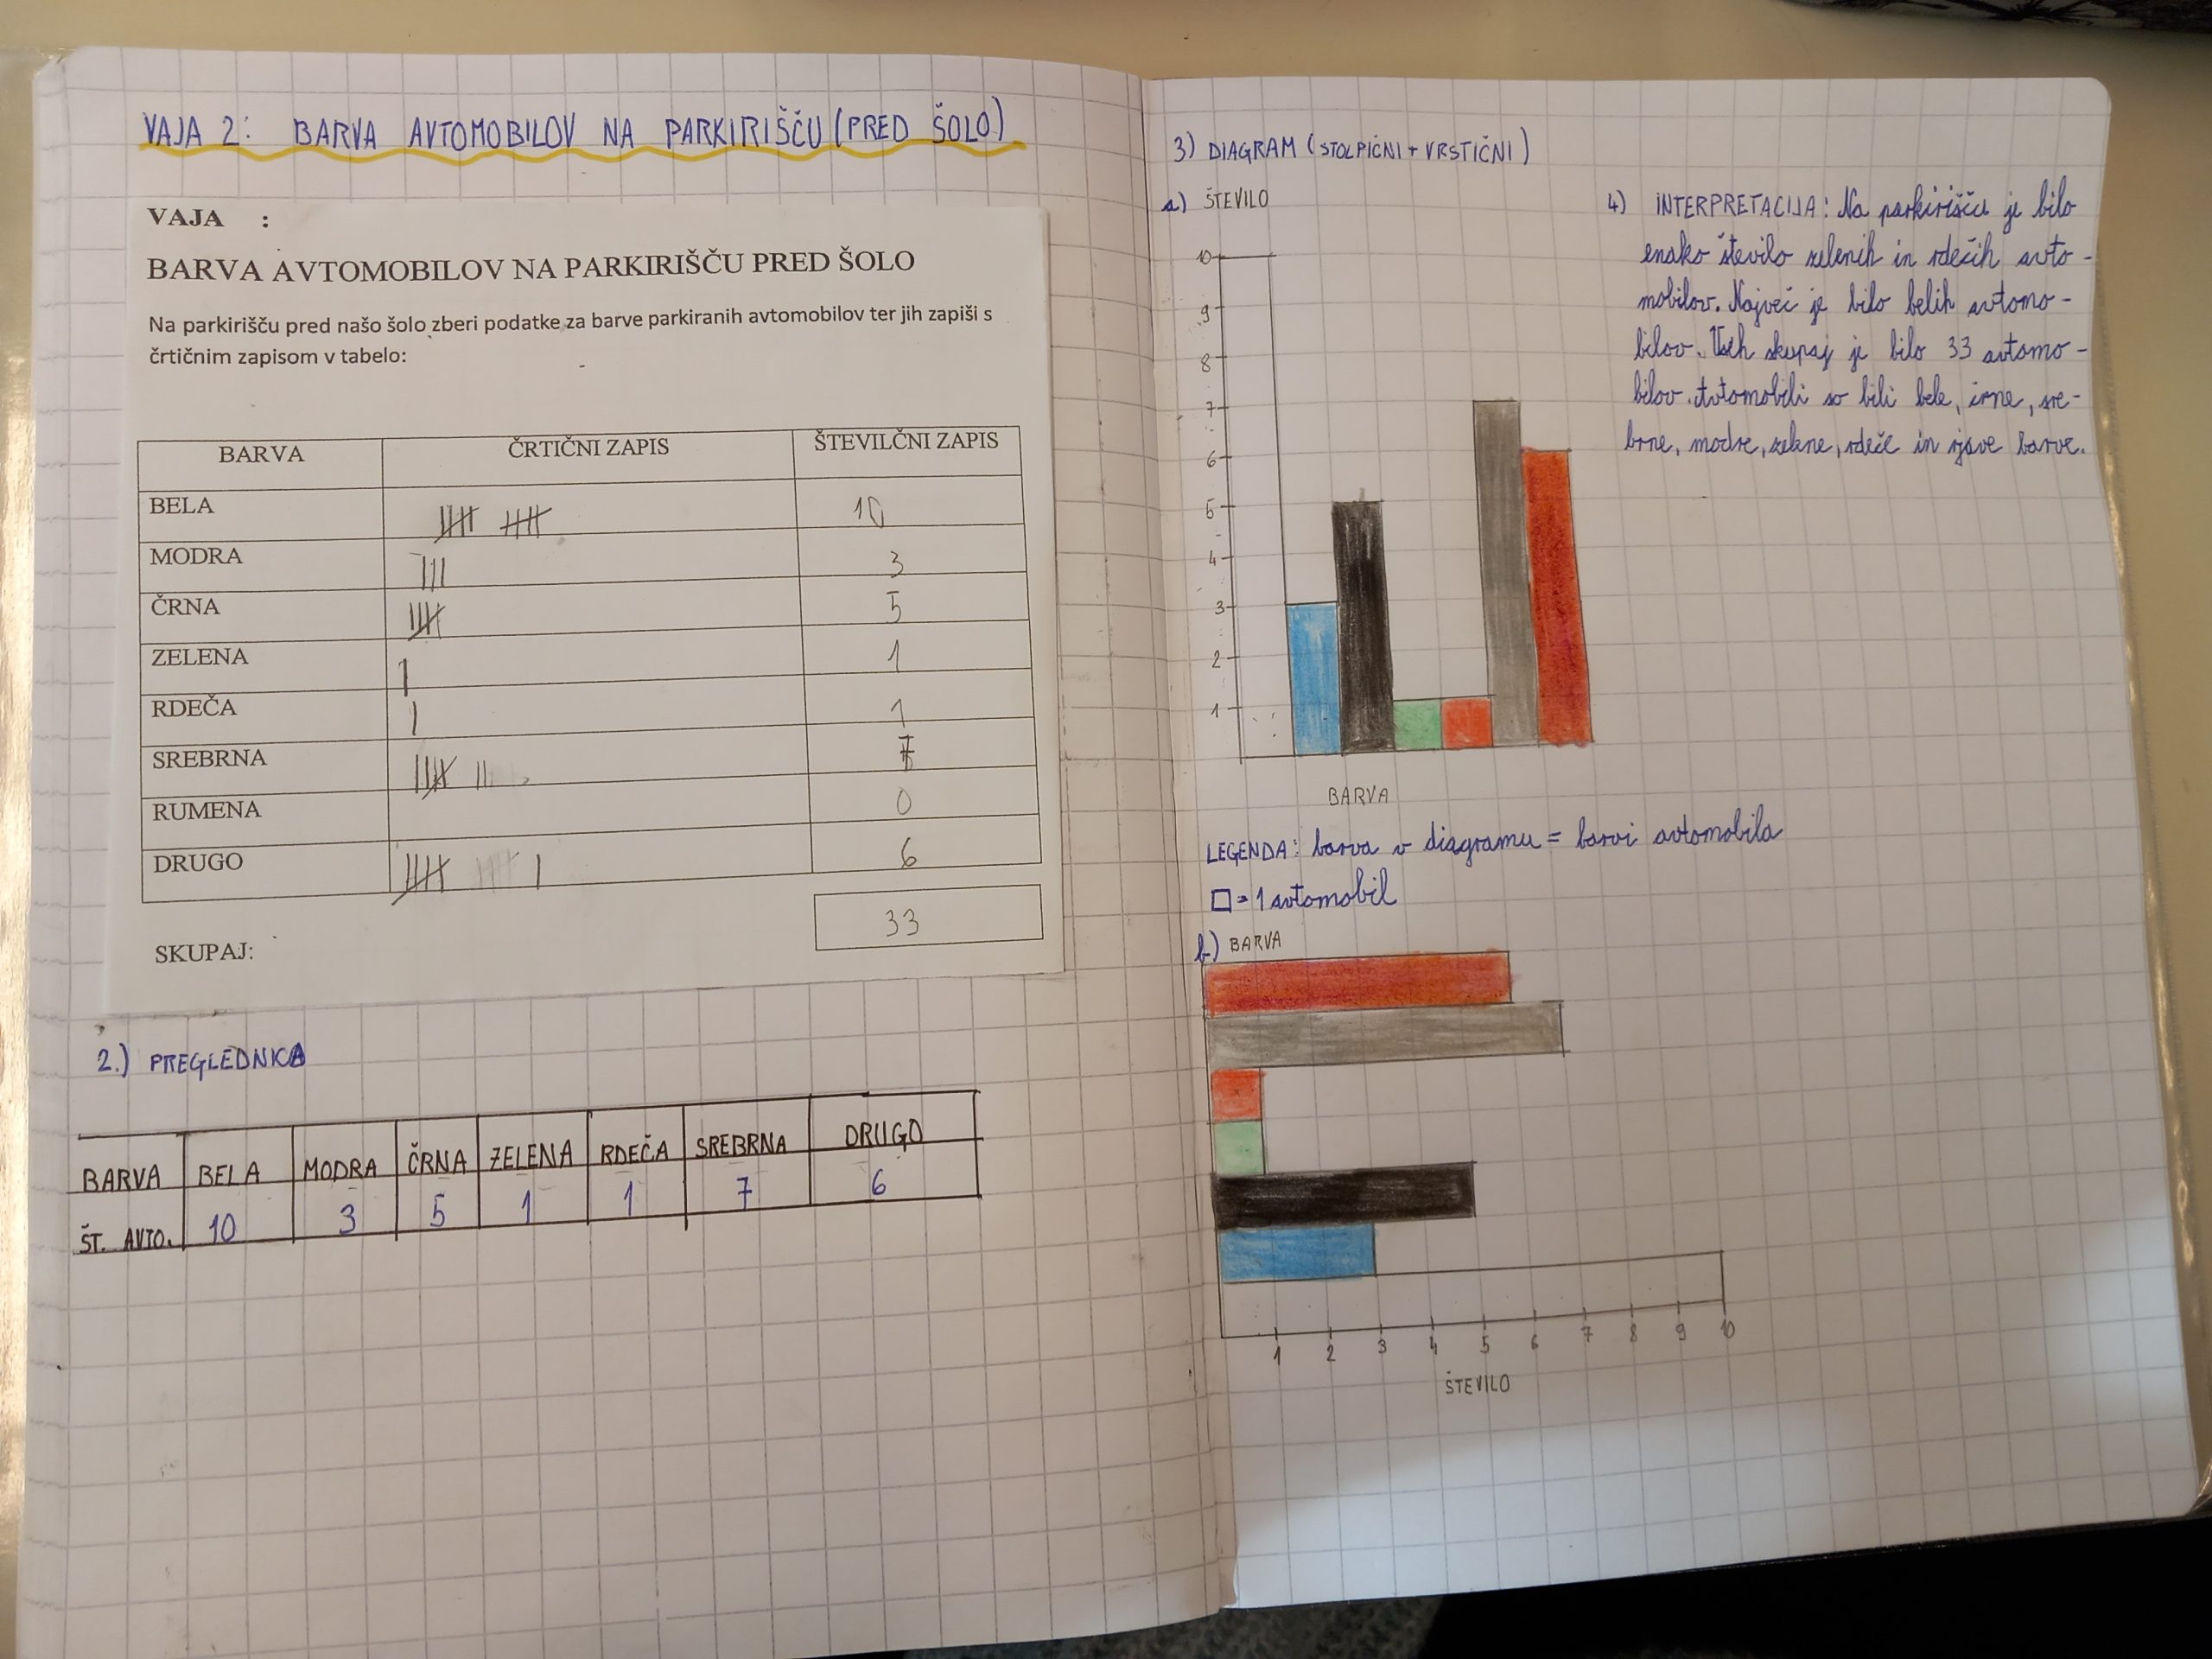 VAJA 2: BARVA AVTOMOBILOV NA PARKIRIŠČU (PRED ŠOLO)
VAJA :
BARVA AVTOMOBILOV NA PARKIRIŠČU PRED ŠOLO
Na parkirišču pred našo šolo zberi podatke za barve parkiranih avtomobilov ter jih zapiši s
črtičnim zapisom v tabelo:
BARVA ČRTIČNI ZAPIS ŠTEVILČNI ZAPIS
BELA 10
MODRA 3
ČRNA 5
ZELENA 1
RDEČA 1
SREBRNA 7
RUMENA 0
DRUGO 6
SKUPAJ: 33
2.) PREGLEDNICA
BARVA BELA MODRA ČRNA ZELENA RDEČA SREBRNA DRUGO
ŠT. AVTO. 10 3 5 1 1 7 6
3) DIAGRAM (STOLPIČNI + VRSTIČNI)
a) ŠTEVILO
10
9
8
7
6
5
4
3
2
1
BARVA
LEGENDA: barva v diagramu = barvi avtomobila
□ = 1 avtomobil
b.) BARVA
1 2 3 4 5 6 7 8 9 10
ŠTEVILO
4) INTERPRETACIJA: Na parkirišču je bilo
enako število zelenih in rdečih avto-
mobilov. Največ je bilo belih avtomo-
bilov. Vseh skupaj je bilo 33 avtomo-
bilov. Avtomobili so bili bele, črne, sre-
brne, modre, zelene, rdeče in rjave barve.